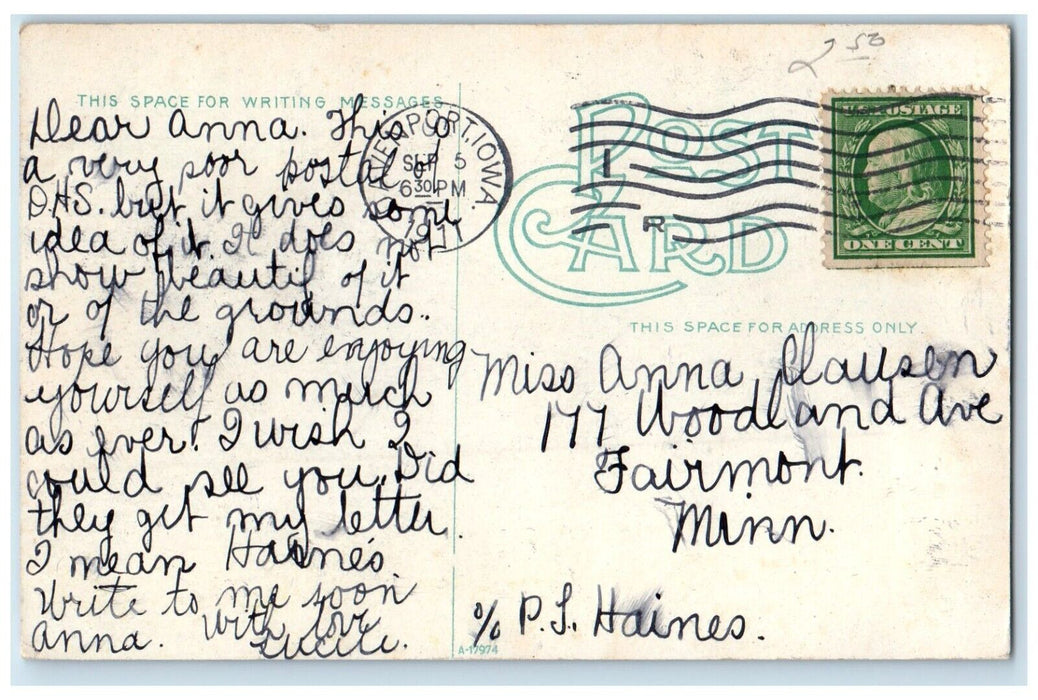 2 50
THIS SPACE FOR WRITING MESSAGES
Dear Anna. This is
a very poor postal of
D.H.S. but it gives some
idea of it. It does not
show beautif of it
or of the grounds.
Hope you are enjoying
yourself as much
as ever. I wish I
could see you. Did
they get my letter.
I mean Haines
Write to me soon
Anna. With love
Lucile.
DAVENPORT, IOWA.
SEP 5
6 30 PM
1911
POST
CARD
U.S. POSTAGE
ONE CENT
THIS SPACE FOR ADDRESS ONLY
Miss Anna Clausen
177 Woodland Ave
Fairmont
Minn.
c/o P.S. Haines.
A-17974